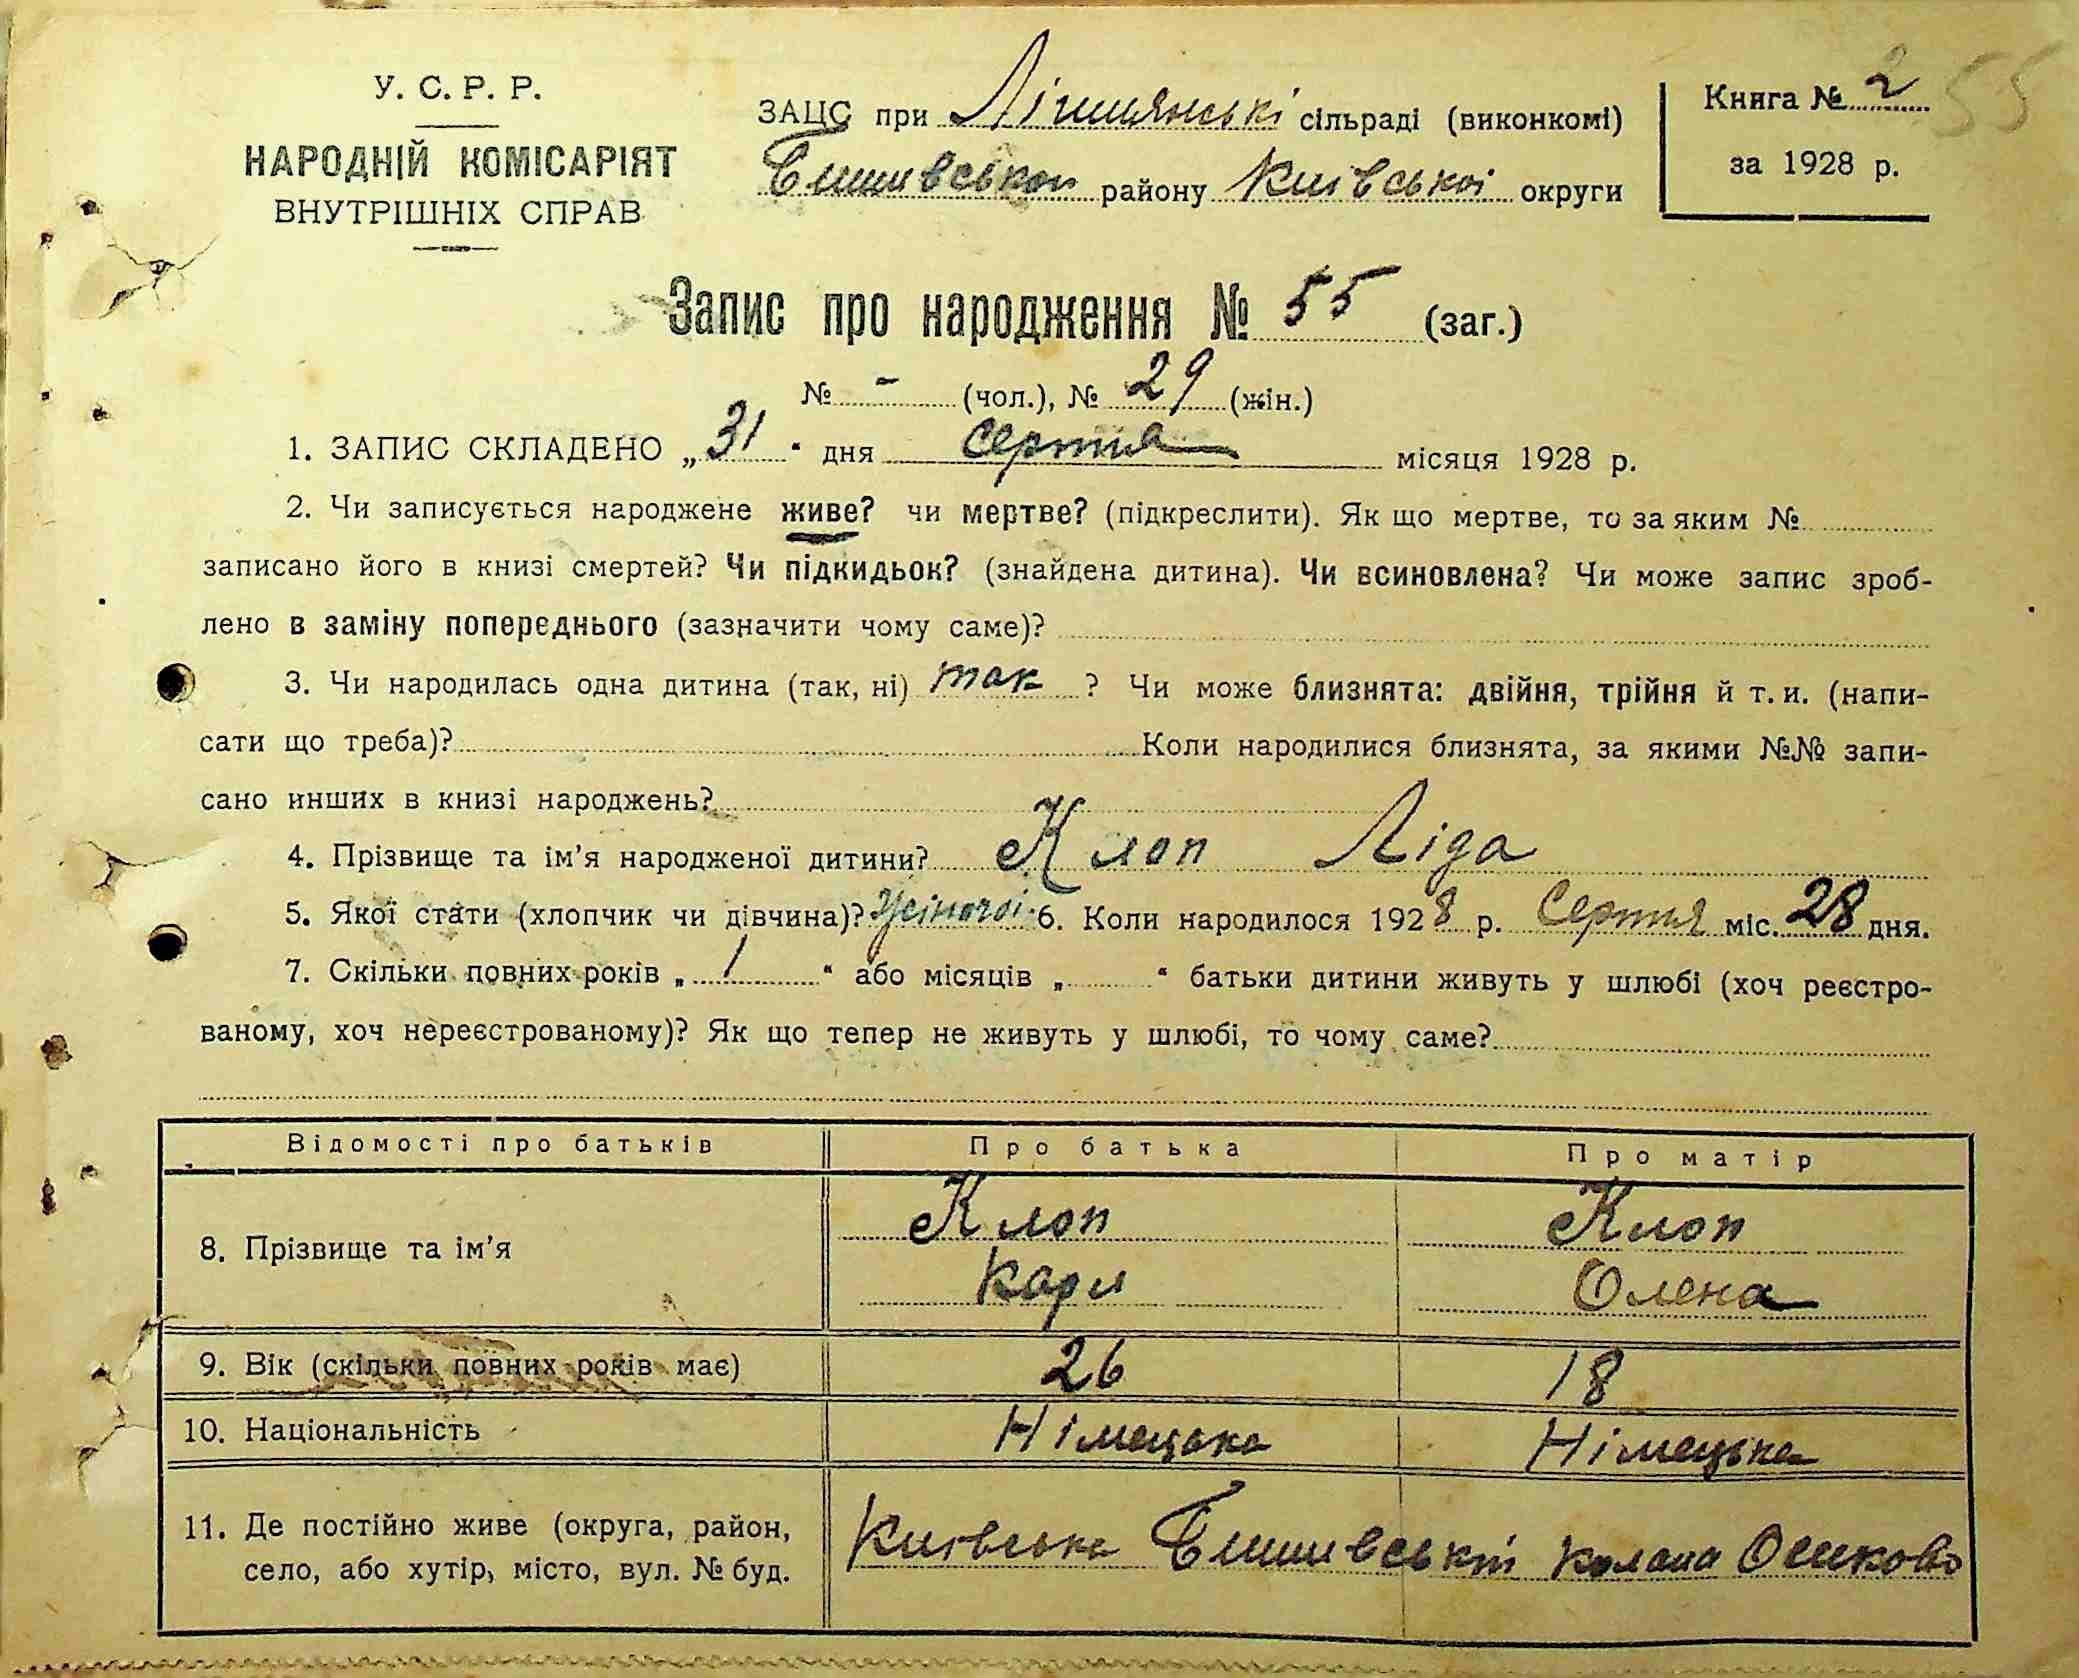 У. С. Р. Р.
НАРОДНІЙ КОМІСАРІЯТ
ВНУТРІШНІХ СПРАВ
ЗАЦС при сільраді (виконкомі)
Бишивської району Київської округи
Книга № 2
55
за 1928 р.
Запис про народження № 55 (заг.)
№ - (чол.), № 29 (жін.)
1. ЗАПИС СКЛАДЕНО „31“ дня серпня місяця 1928 р.
2. Чи записується народжене живе? чи мертве? (підкреслити). Як що мертве, то за яким №
записано його в книзі смертей? Чи підкидьок? (знайдена дитина). Чи всиновлена? Чи може запис зроб-
лено в заміну попереднього (зазначити чому саме)?
3. Чи народилась одна дитина (так, ні) так ? Чи може близнята: двійня, трійня й т. и. (напи-
сати що треба)? Коли народилися близнята, за якими №№ запи-
сано инших в книзі народжень?
4. Прізвище та ім’я народженої дитини? Клоп Ліда
5. Якої стати (хлопчик чи дівчина)? жіночої 6. Коли народилось 1928 р. Серпня міс. 28 дня.
7. Скільки повних років „1“ або місяців „ “ батьки дитини живуть у шлюбі (хоч реєстро-
ваному, хоч нереєстрованому)? Як що тепер не живуть у шлюбі, то чому саме?
Відомості про батьків Про батька Про матір
8. Прізвище та ім’я Клоп Клоп
Карл Олена
9. Вік (скільки повних років має) 26 18
10. Національність Німецька Німецька
11. Де постійно живе (округа, район,
село, або хутір, місто, вул. № буд.
Київська Бишивський Осиково